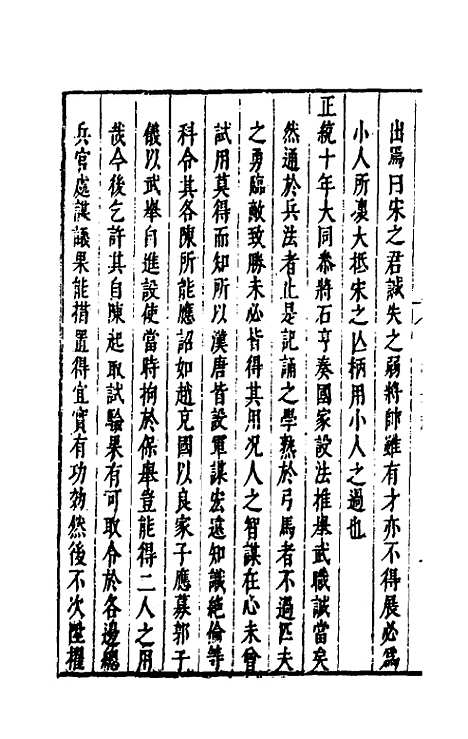 出焉曰宋之君誠失之弱將帥雖有才亦不得展必為
小人所裹大抵宋之亾柄用小人之過也
正統十年大同叅將石亨奏國家設法推舉武職誠當矣
然通於兵法者止是記誦之學熟於弓馬者不過匹夫
之勇臨敵致勝未必皆得其用况人之智謀在心未曾
試用莫得而知所以漢唐皆設軍謀宏遠知識絶倫等
科令其各陳所能應詔如趙充國以良家子應募郭子
儀以武舉自進設使當時拘於保舉豈能得二人之用
哉今後乞許其自陳起取試驗果有可取令於各邊總
兵官處謀議果能措置得宜實有功効然後不次陞擢